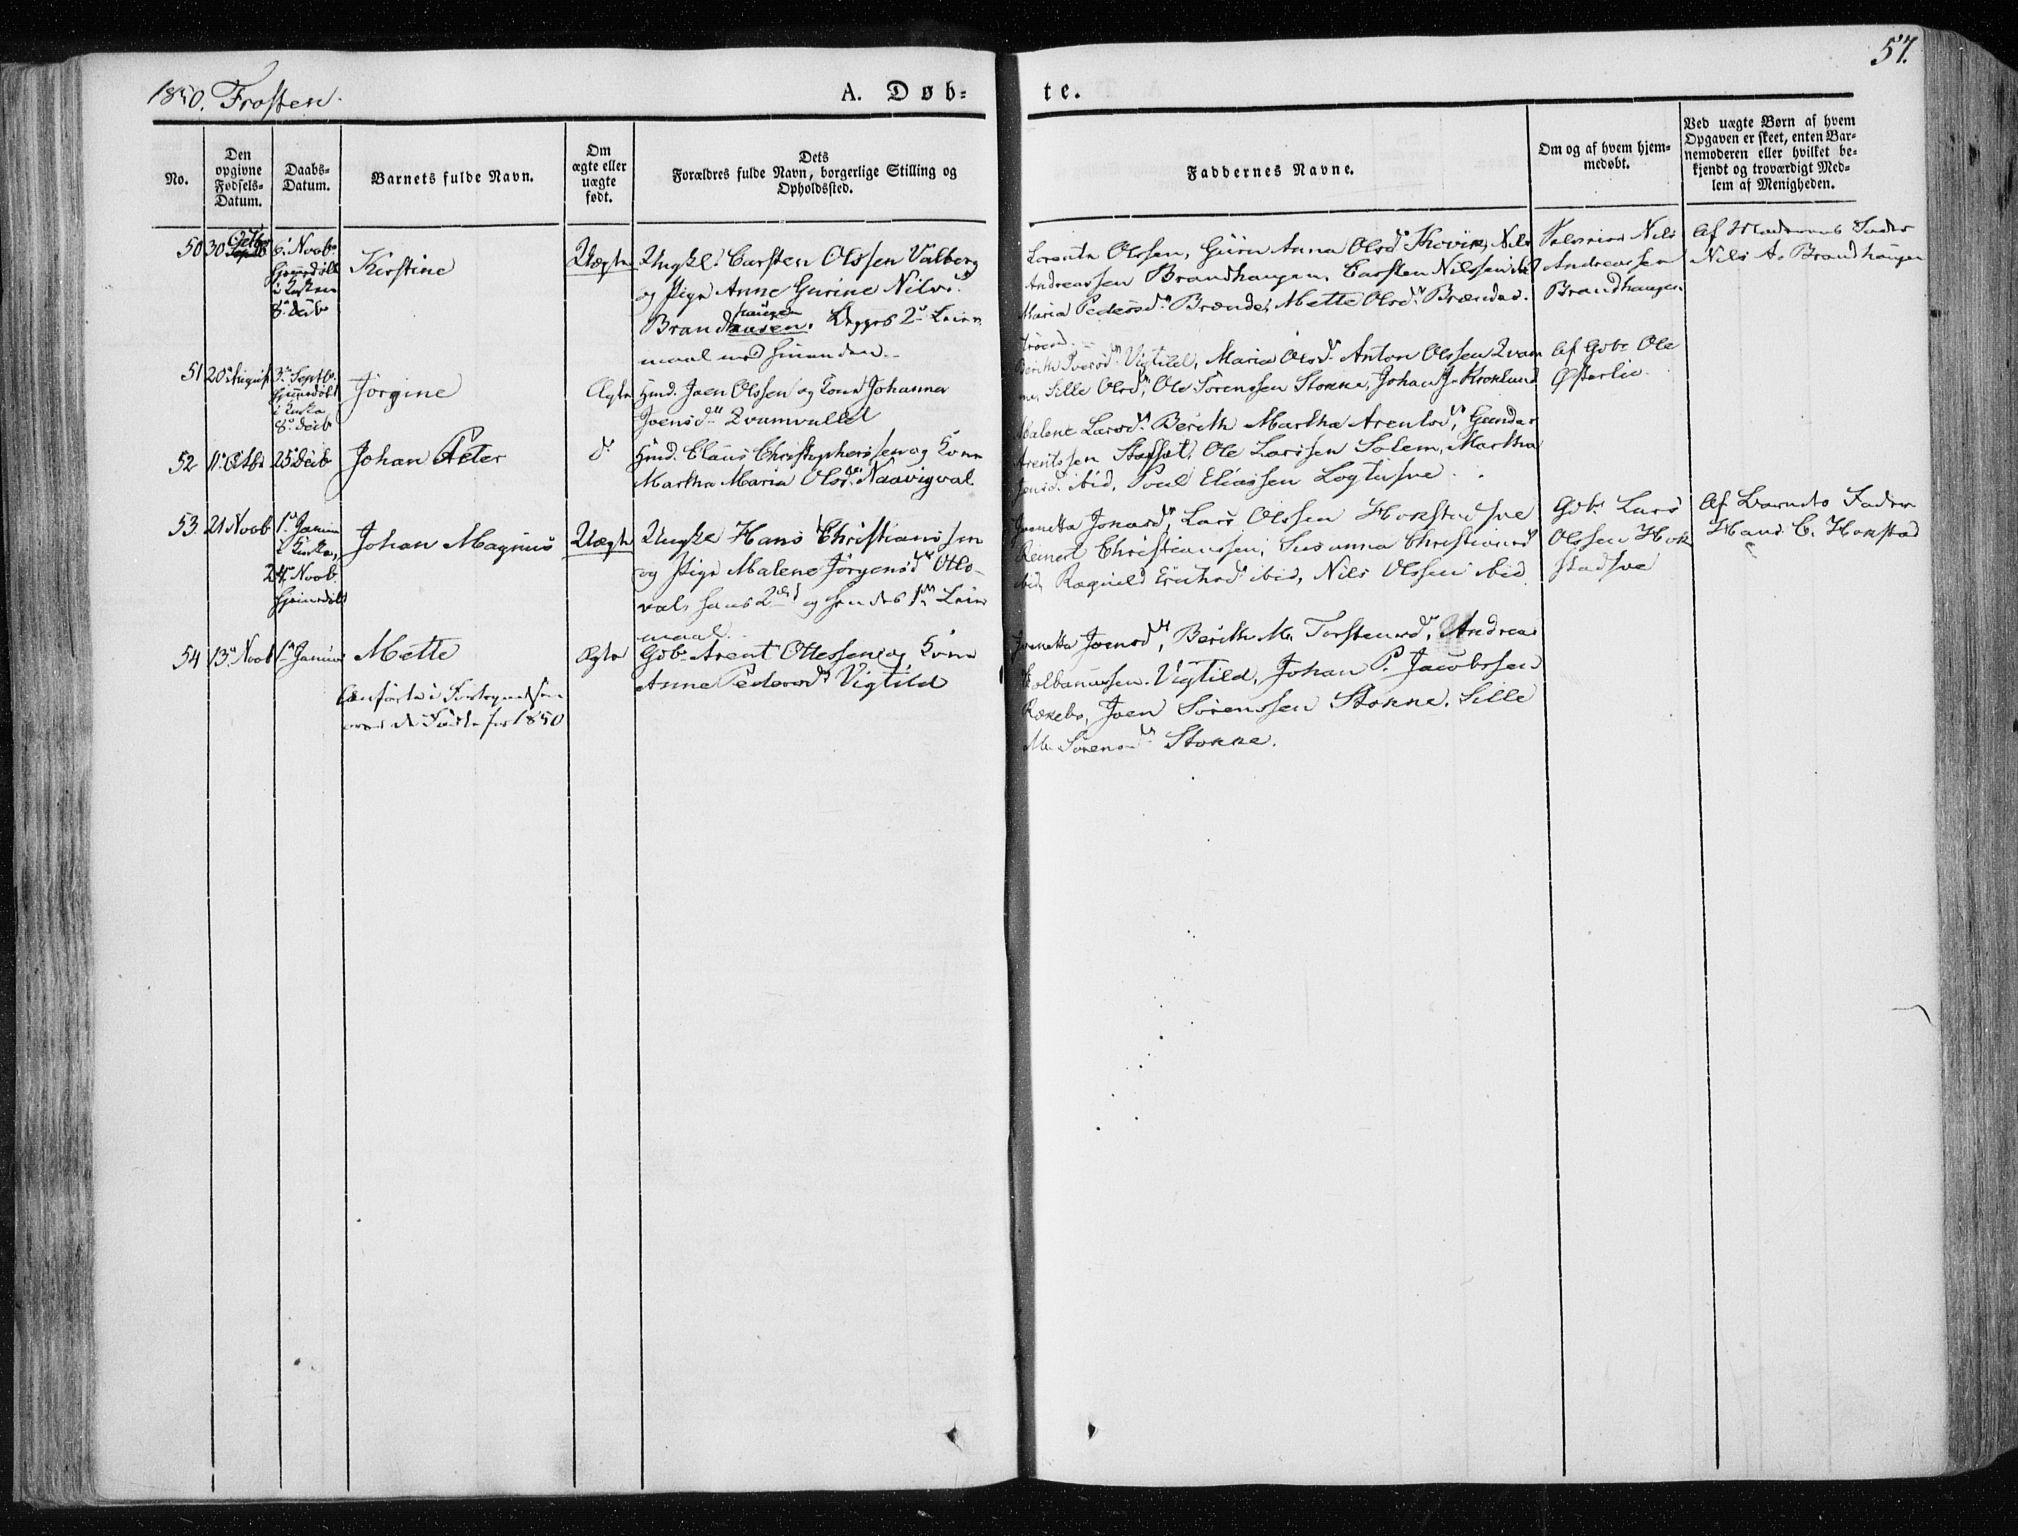 1850. Frosten.
A. Døb-
te.
57.
No.
Den
opgivne
Fødsels-
Datum.
Daabs-
Datum.
Barnets fulde Navn.
Om
ægte eller
uægte
født.
Dets
Forældres fulde Navn, borgerlige Stilling og
Opholdssted.
Faddernes Navne.
Om og af hvem hjem-
medøbt.
Ved uægte Børn af hvem
Opgaven er skeet, enten Bar-
nemoderen eller hvilket be-
kjendt og troværdigt Med-
lem af Menigheden.
50
30 Octbr
6 Novb.
Hjemdøbt
i Kirken
8 Decb
Kirstine
Uægte
Ungkl. Carsten Olssen Valberg
og Pige Anne Gurine Nilsd.
Brandhaugen. Begges 2 Leier-
maal med hinanden.
Lorents Olssen, Guru Anna Olsd Skovik, Nils
Andreassen Brandhaugen, Carsten Nilssen ibd
Maria Pedersd Brænde, Mette Olsd Brændes-
trøen.
Nils
Andreassen
Brandhaugen
Af Moderens Fader
Nils A. Brandhaugen
51
20 August
3 Septb.
Hjemdøbt
i Kirken
8 Decb
Jørgine
Ægte
Huusd. Joen Olssen og Kone Johanna
Joensd Kvamvallet
Berith Vigtild, Maria Olsd Anton Olssen Kvam
Sille Olsd, Ole Sørenssen Stokke, Johan J. Kroklund
Af Gdb. Ole
Østerlie.
52
11 Octb
25 Decb
Johan Peter
d
Huusd. Claus Christophersen og Kone
Martha Maria Olsd. Naavigval
Malene Larsd Berith Martha Arentsd, Gunder
Arentssen Stafset, Ole Larssen Salem, Martha
Jensd ibid, Poul Eliassen Logtusve.
53.
21 Novb
1 Januar
i Kirken,
24 Novb.
Hjemdøbt
Johan Magnus
Uægte
Ungkl Hans Christianssen
og Pige Malene Jørgensd Otlo-
val, hans 2det og hendes 1ste Leier
maal.
Jonetta Jonasd, Lars Olssen Hokstadsve
Reinert Christianssen, Susanna Christiansd
ibid, Ragnild Erichsd ibid, Nils Olssen ibid
Gdb. Lars
Olssen Hok
stadsve
Af Barnets Fader
Hans C. Hokstad
54
13 Novb
1 Januar
Mette
Anførte i Fortegnelsen
over de Fødte for 1850
Ægte
Gdb. Arent Ottessen og Kone
Anne Pedersd Vigtild
Jonetta Joensd, Berith M. Torstensd, Andreas
Kolbanussen Vigtild, Johan P. Jacobssen
Rokebo, Joen Sørenssen Stokke. Sille
M. Sørensd Stokke.